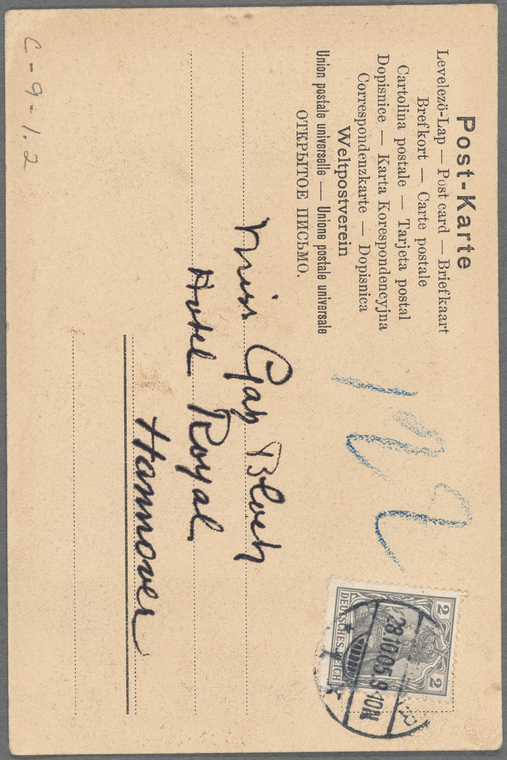 Post-Karte
Levelező-Lap — Post card — Briefkaart
Brefkort — Carte postale
Cartolina postale — Tarjeta postal
Dopisnice — Karta Korespondencyjna
Correspondenzkarte — Dopisnica
Weltpostverein
Union postale universelle — Unione postale universale
ОТКРЫТОЕ ПИСЬМО.
122
2 2
DEUTSCHES REICH
28.10.05.9-10N
Miss Gay Bloch
Hotel Royal
Hannover
C-9-1.2